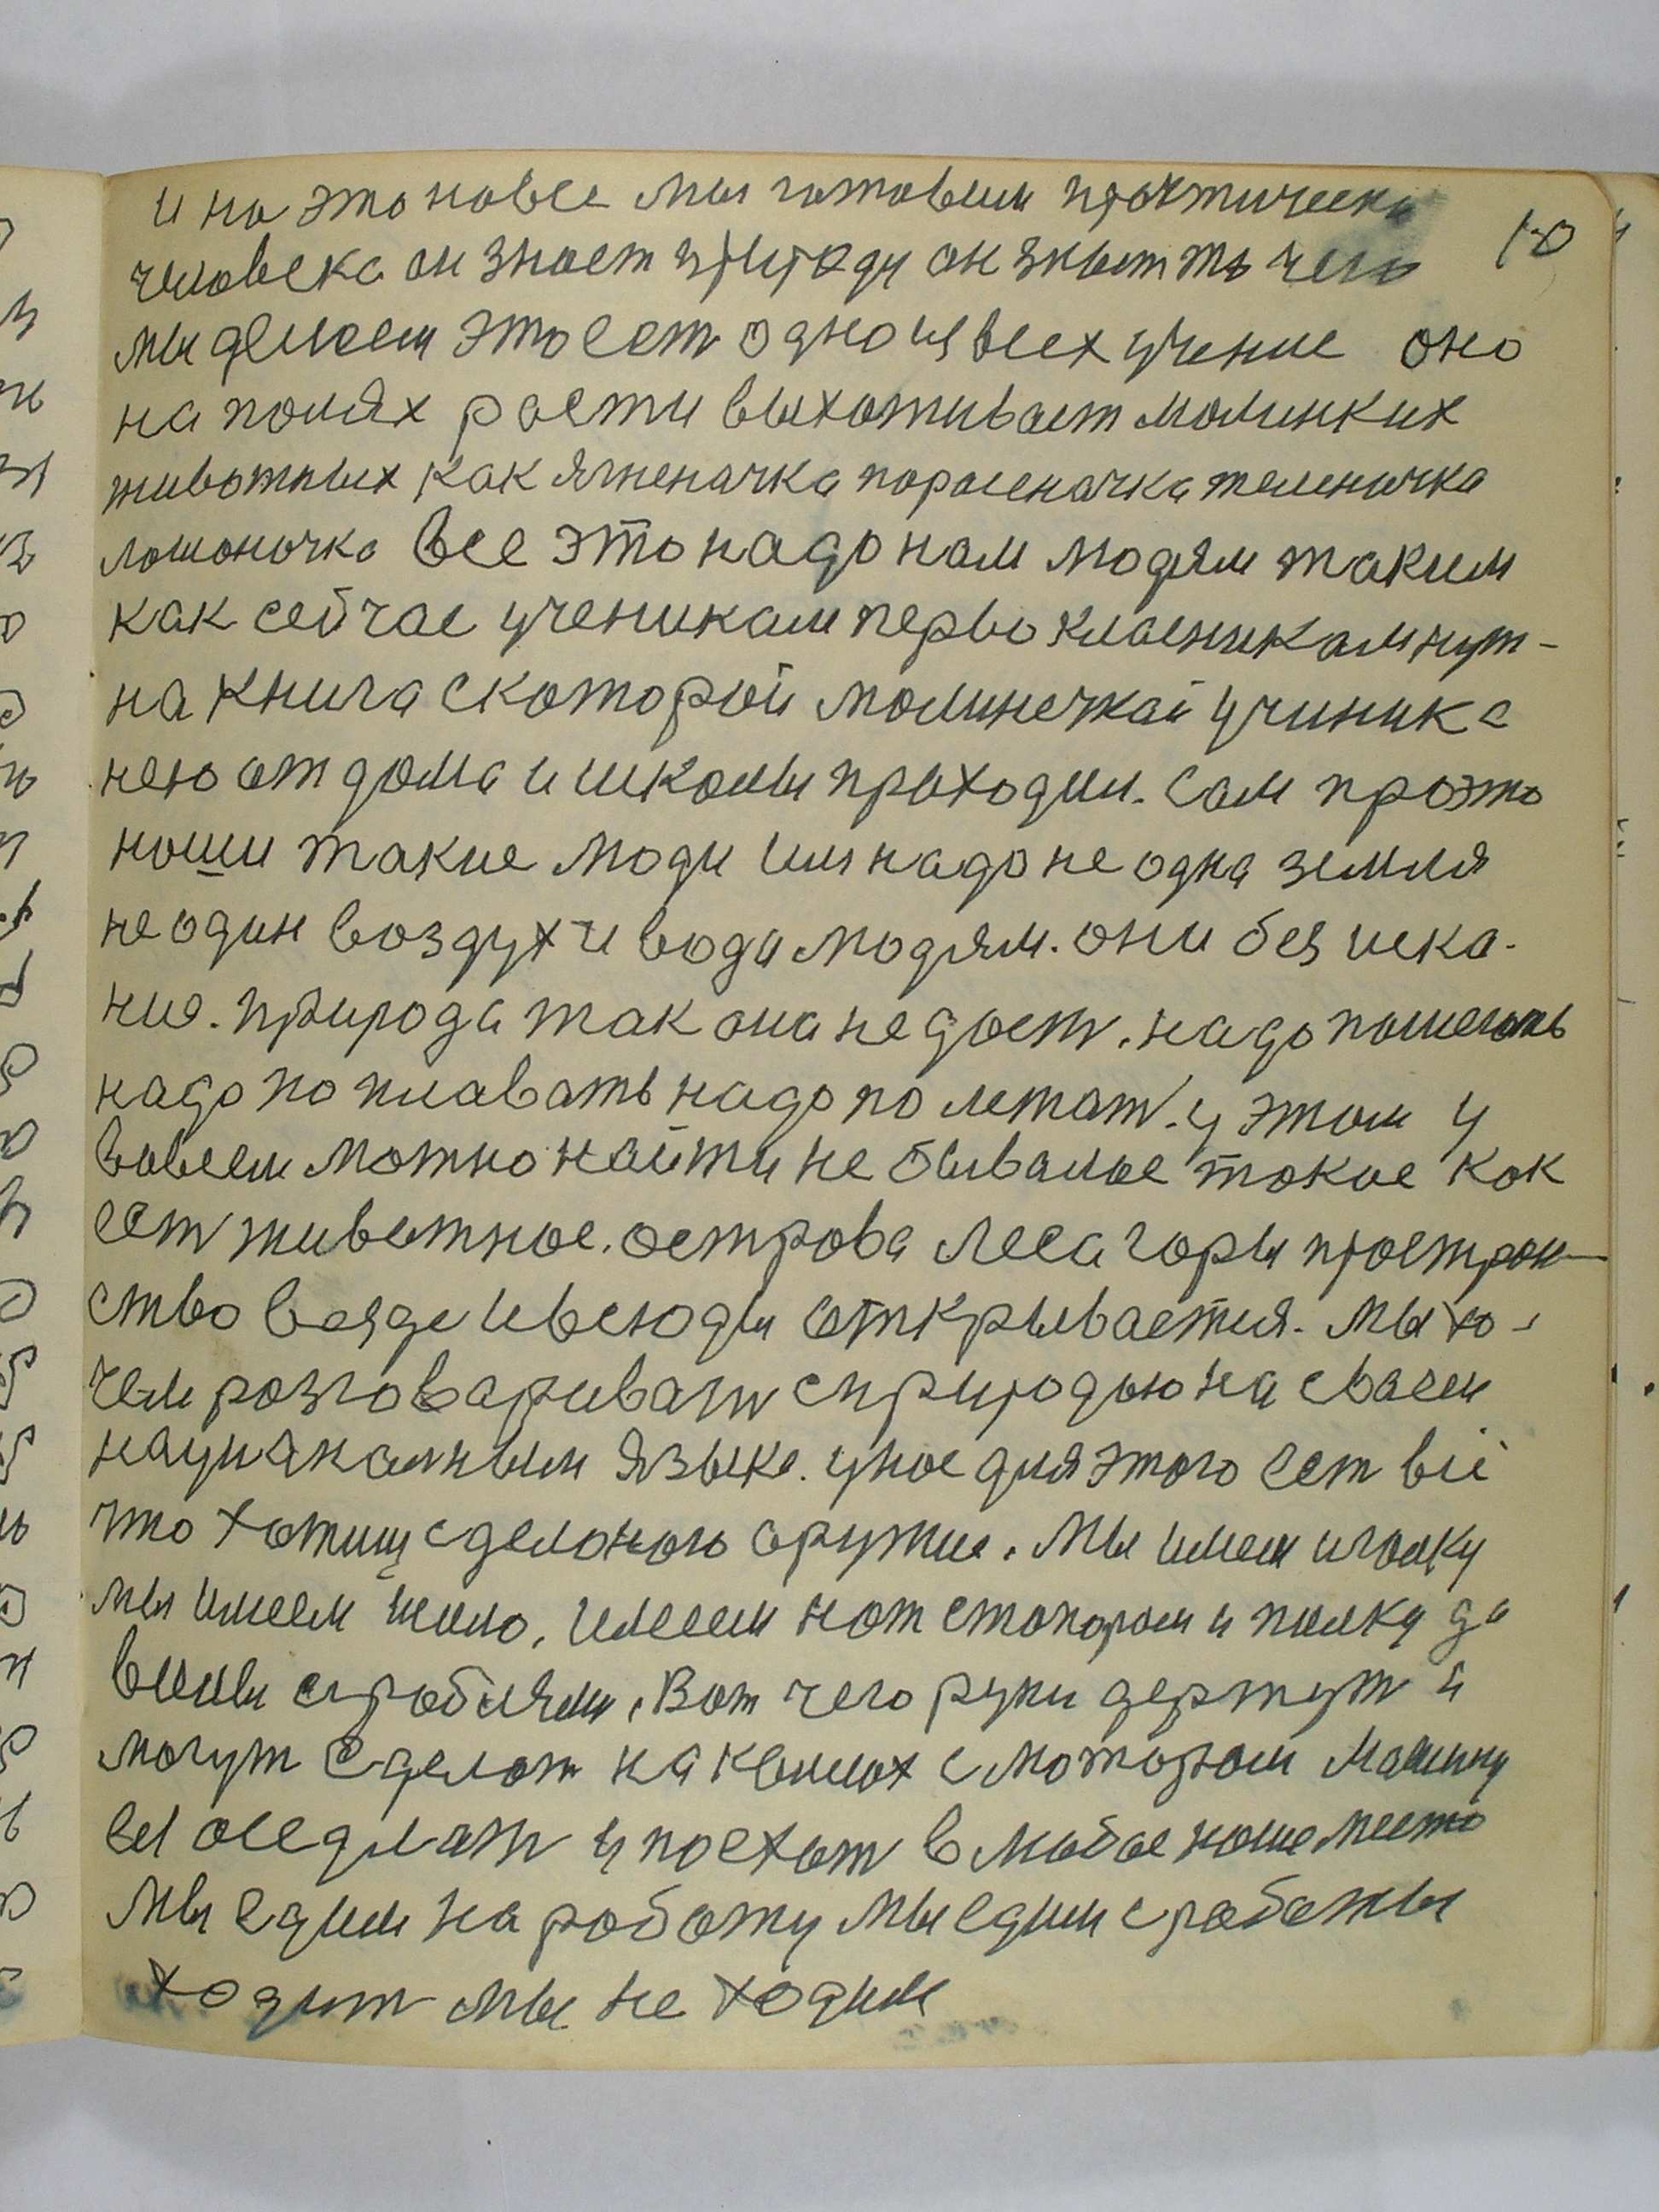 и на это новое мы готовым прахтически
человека он знает природу он знает то чего 10
мы делаем это ест одно из всех учение оно
на полях расти выхотивает малинких
животных как ягненачка пораненачка теленачка
лошоночка все это надо нам людям таким
как сейчас ученикам перво класникам нуж-
на книга с которой малинечкай ученик с
нею от дома и школы приходил. Сам про это
наши такие люди им надо не одна земля
не один воздух и вода людям. они без иска-
ния. природа так она не дает. надо пошегать
надо поплавать надо полетат. у этом у
во всем можно найти не бывалое такое как
ест животное. острова леса горы простран-
ство везде и всюды открывается. мы хо-
чем розговаривать с природою на своем
национальным языке. у нас для этого ест всё
что хотиш сделоного оружие. Мы имем иголку
мы имеем шило, имеем нож стопором и пилку да
вилы с граблями. Вот чего руки держут и
могут сделат на колёсах с мотором машину
ея оседлат и поехат в любое наше место
Мы едим на роботу мы едим с работы
ходит мы не ходим